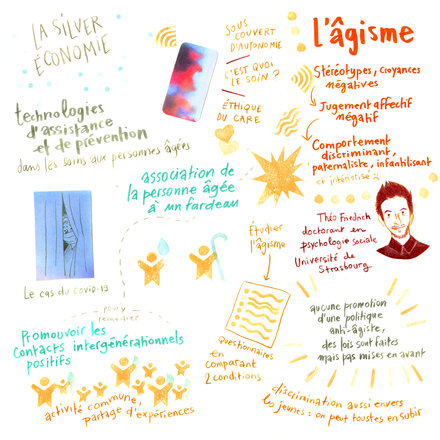 LA SILVER
ÉCONOMIE
technologies
d'assistance
et de prévention
dans les soins aux personnes âgées
SOUS
COUVERT
D'AUTONOMIE
C'EST QUOI
LE SOIN ?
ÉTHIQUE
DU CARE
L'âgisme
Stéréotypes, croyances
négatives
Jugement affectif
négatif
Comportement
discriminant,
paternaliste, infantilisant
et intériorisé ?
association de
la personne âgée
à un fardeau
Le cas du covid-19
Étudier
l'âgisme
Théo Friedrich
doctorant en
psychologie sociale
Université de
Strasbourg
pour
Promouvoir les
Contacts intergénérationnels
positifs
activité commune,
partage d'expériences
Questionnaires
en
comparant
2 conditions
aucune promotion
d'une politique
anti-âgiste,
des lois sont faites
mais pas mises en avant
discrimination aussi envers
les jeunes : on peut toustes en subir